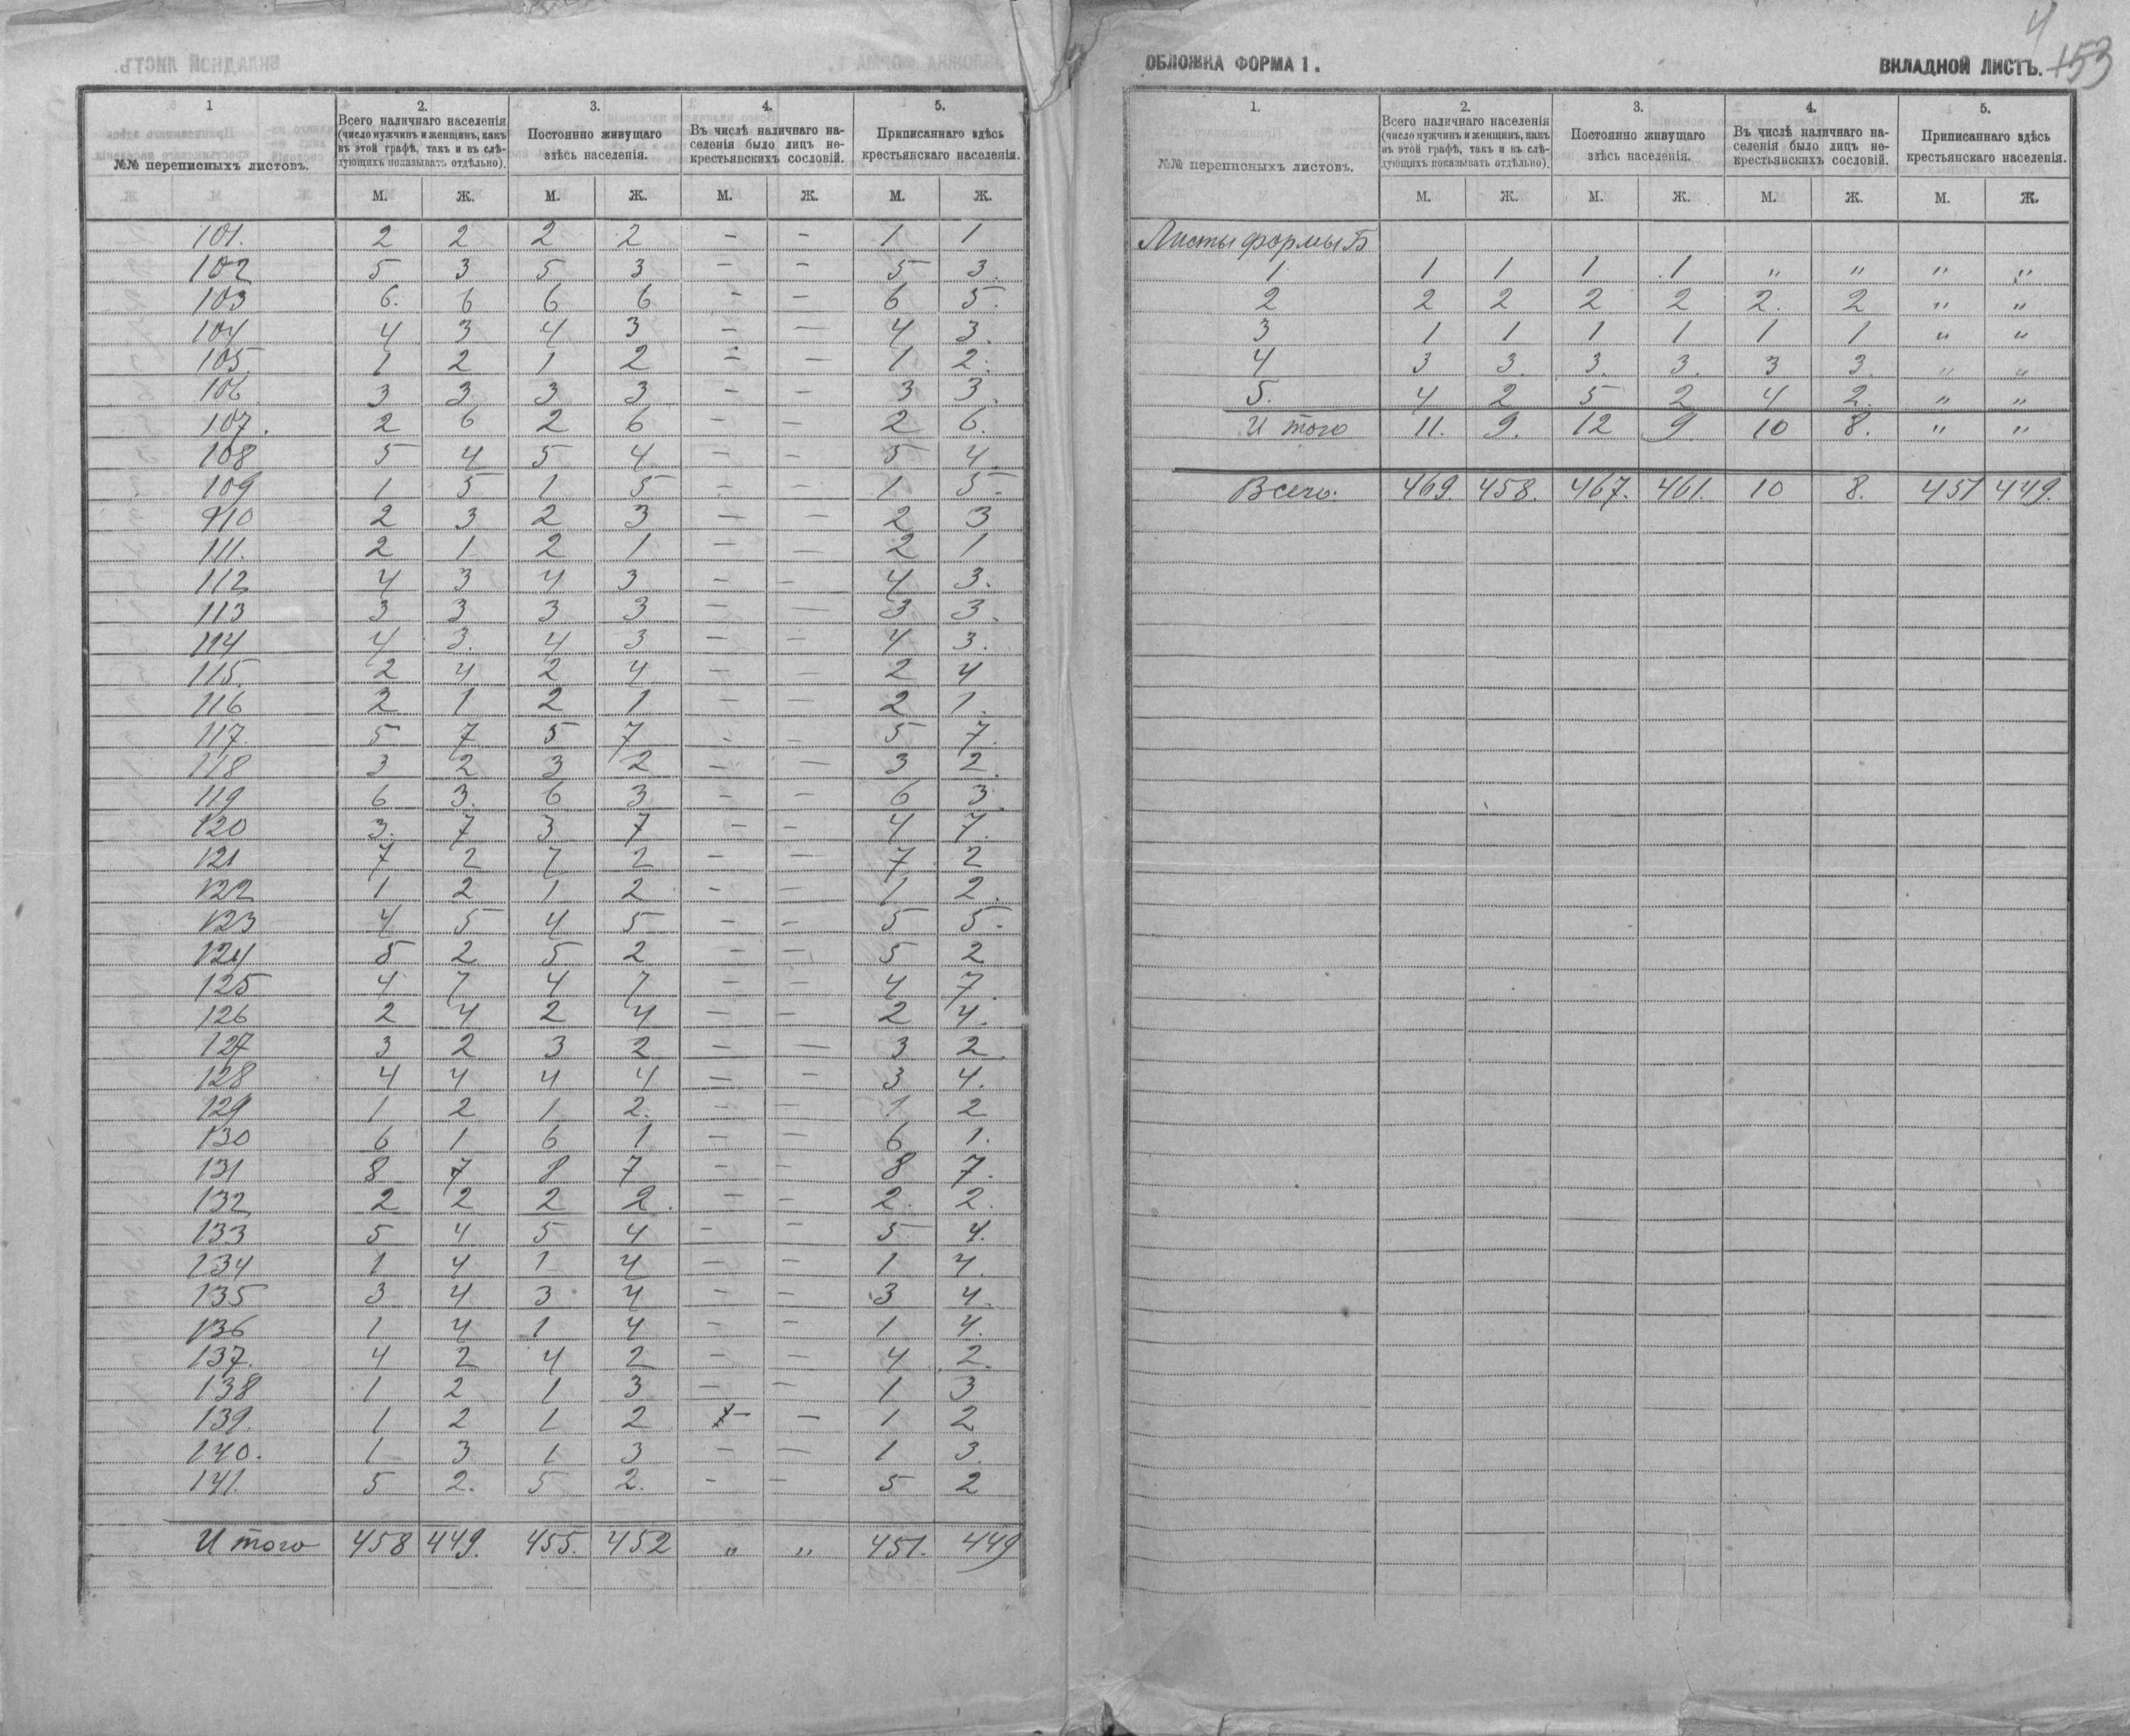 1 2. 3. 4. 5.
№№ переписныхъ листовъ.
Всего наличнаго населенія
(число мужчинъ и женщинъ, какъ
въ этой графѣ, такъ и въ слѣ-
дующихъ показывать отдѣльно).
Постоянно живущаго
здѣсь населенія.
Въ числѣ наличнаго на-
селенія было лицъ не-
крестьянскихъ сословій.
Приписаннаго здѣсь
крестьянскаго населенія.
М. Ж. М. Ж. М. Ж. М. Ж.
101. 2 2 2 2 - - 1 1
102 5 3 5 3 - - 5 3.
103 6. 6 6 6 - - 6 5.
104 4 3 4 3 - - 4 3.
105. 1 2 1 2 - - 1 2.
106 3 3 3 3 - - 3 3.
107. 2 6 2 6 - - 2 6.
108 5 4 5 4 - - 5 4.
109 1 5 1 5 - - 1 5.
110 2 3 2 3 - - 2 3
111. 2 1 2 1 - - 2 1
112 4 3 4 3 - - 4 3.
113 3 3 3 3 - - 3 3.
114 4 3. 4 3 - - 4 3.
115. 2 4 2 4 - - 2 4
116 2 1 2 1 - - 2 1.
117. 5 7 5 7 - - 5 7.
118 3 2 3 2 - - 3 2.
119 6 3. 6 3 - - 6 3.
120 3. 7 3 7 - - 4 7.
121 7 2 7 2 - - 7 2
122 1 2 1 2 - - 1 2.
123 4 5 4 5 - - 5 5.
124 5 2 5 2 - - 5 2
125 4 7 4 7 - - 4 7.
126 2 4 2 4 - - 2 4.
127 3 2 3 2 - - 3 2.
128 4 4 4 4 - - 3 4.
129 1 2 1 2. - - 1 2
130 6 1 6 1 - - 6 1.
131 8 7 8 7 - - 8 7.
132 2 2 2 2. - - 2. 2.
133 5 4 5 4 - - 5 4.
134 1 4 1 4 - - 1 4.
135 3 4 3 4 - - 3 4.
136 1 4 1 4 - - 1 4.
137. 4 2 4 2 - - 4 2.
138 1 2 1 3 - - 1 3
139. 1 2 1 2 - - 1 2
140. 1 3 1 3 - - 1 3.
141. 5 2. 5 2. - - 5 2
Итого 458 449. 455. 452 " " 451. 449
4
153
ОБЛОЖКА ФОРМА 1.
ВКЛАДНОЙ ЛИСТЪ.
1. 2. 3. 4. 5.
№№ переписныхъ листовъ.
Всего наличнаго населенія
(число мужчинъ и женщинъ, какъ
въ этой графѣ, такъ и въ слѣ-
дующихъ показывать отдѣльно).
Постоянно живущаго
здѣсь населенія.
Въ числѣ наличнаго на-
селенія было лицъ не-
крестьянскихъ сословій.
Приписаннаго здѣсь
крестьянскаго населенія.
М. Ж. М. Ж. М. Ж. М. Ж.
Листы формы Б
1. 1 1 1 1 " " " "
2 2 2 2 2 2. 2 " "
3 1 1 1 1 1 1 " "
4 3 3. 3. 3. 3 3. " "
5. 4 2 5 2 4 2. " "
Итого 11. 9. 12 9. 10 8. " "
Всего. 469 458. 467. 461. 10 8. 451 449.